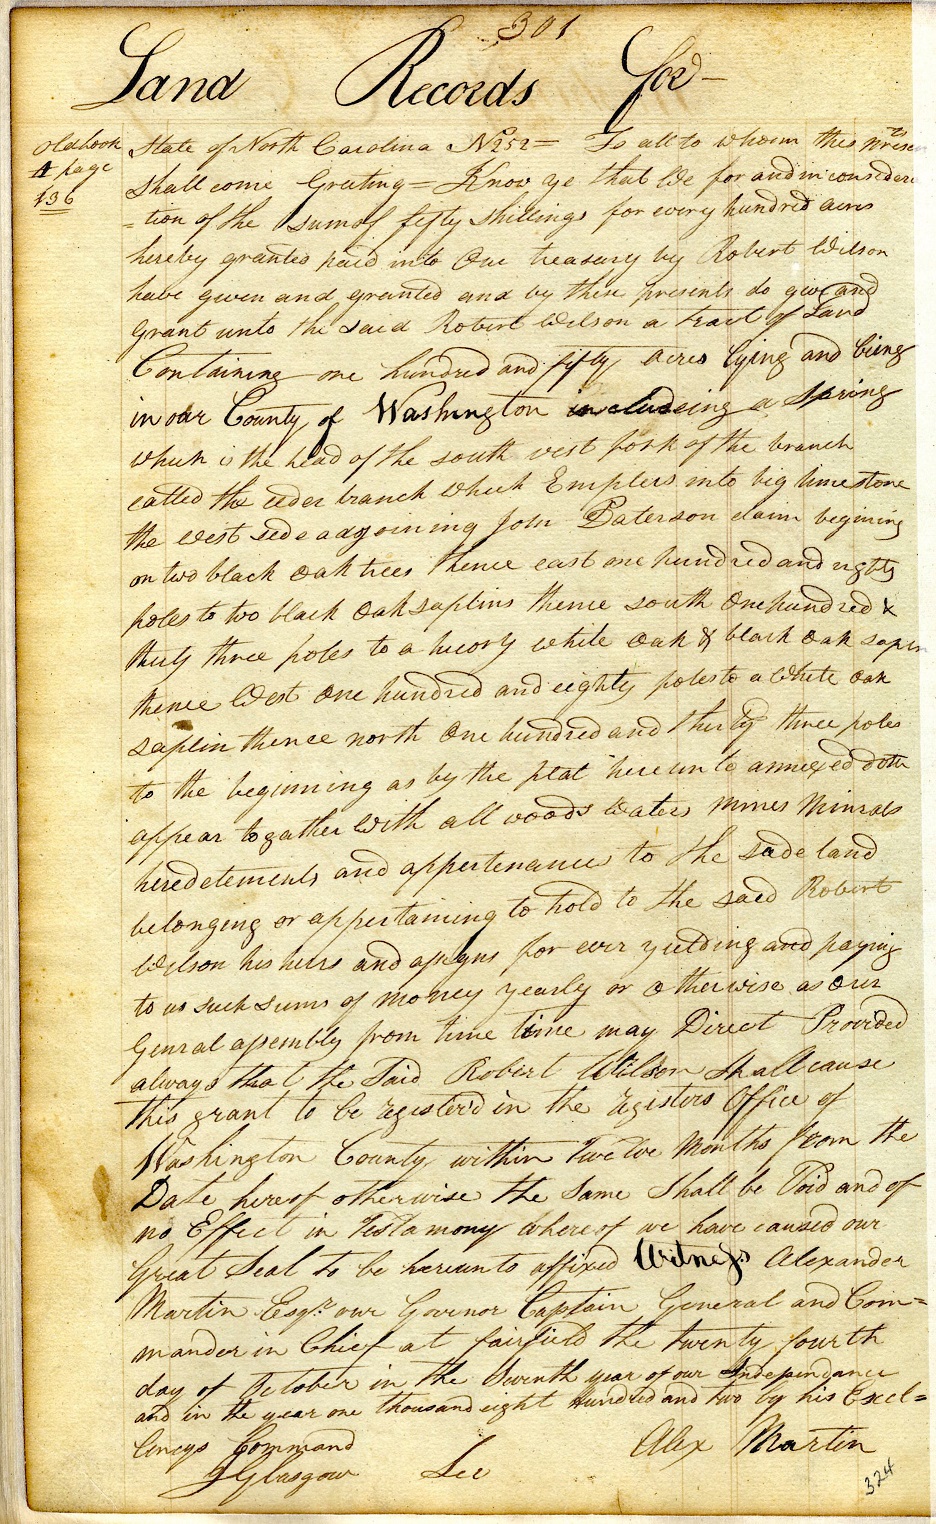 301
Land Records for
old book
A page
136
State of North Carolina No 252 = To all to whom these Presen
ts
shall come Greeting = Know ye that We for and in considera
=tion of the sum of fifty shillings for every hundred acres
hereby granted paid into Our treasury by Robert Wilson
have given and granted and by these presents do give and
Grant unto the said Robert Wilson a tract of Land
Containing one hundred and fifty acres lying and being
in our County of Washington includeing a Spring
which is the head of the south west fork of the branch
called the ceder branch which Empters into big lime stone
the west side adjoining John Paterson claim begining
on two black oak trees thence east one hundred and eighty
poles to two black oak saplins thence south one hundred &
thirty three poles to a hicory white oak & black oak sapin
thence West one hundred and eighty poles to a White oak
saplin thence north One hundred and thirty three poles
to the beginning as by the plat hereunto annexed doth
appear togather with all woods waters mines Minrals
heredetements and appertenances to the sade land
belonging or appertaining to hold to the said Robert
Wilson his heirs and assigns for ever yielding and paying
to us such sums of money yearly or otherwise as our
General assembly from time time may Direct Provided
always that the Said Robert Wilson shall cause
this grant to be registerd in the registers Office of
Washington County within Twelve Months from the
Date hereof otherwise the same shall be Void and of
no Effect in Testamony Whereof we have caused our
Great Seal to be hereunto affixed Witness Alexander
Martin Esqr. our Govenor Captain General and Com=
mander in Chief at fairfield the twenty fourth
day of October in the Seventh year of our Independance
and in the year one thousand eight Hundred and two by his Excel=
lencys Command
Alex Martin
J Glasgow Sec
324